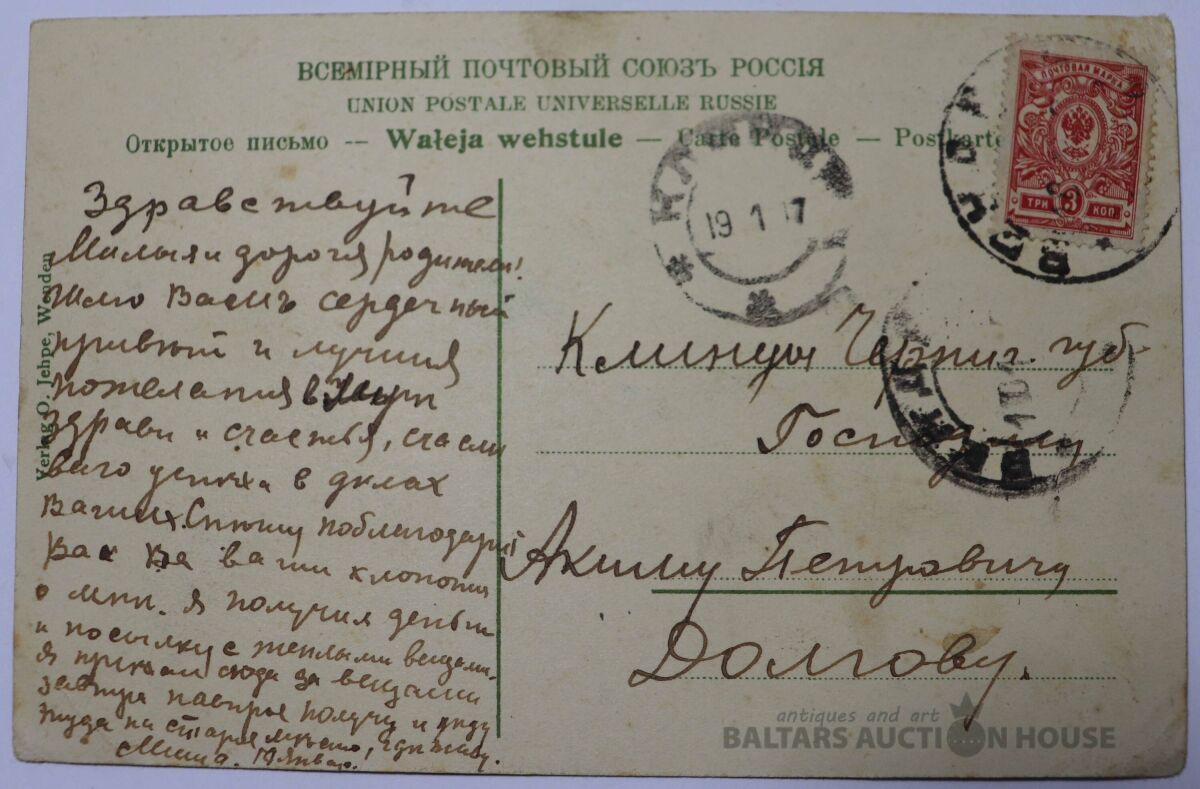 ВСЕМІРНЫЙ ПОЧТОВЫЙ СОЮЗЪ РОССІЯ
UNION POSTALE UNIVERSELLE RUSSIE
Открытое письмо -- Wałeja wehstule — Carte Postale — Postkarte
ПОЧТОВАЯ МАРКА
ТРИ 3 КОП
19 1 17
Verlag O. Jehpe, Wenden
Здравствуйте
Милыя и дорогя родители!
Шлю Вамъ сердечный
привѣт и лучшия
пожелания в
здрави и счастья, счасли
ваго успѣха в дѣлах
Ваших. Спѣшу поблагодарит
Вас за ваши хлопоты
о мнѣ. Я получил деньги
и посылку с теплыми вещами.
Я приѣхал сюда за вещами
завтра наверное получу и уѣду
туда на старое мѣсто, гдѣ живу.
Миша. Январ.
Клинцы Черниг. губ.
Господину
Акиму Петровичу
Долгову.
antiques and art
BALTARS AUCTION HOUSE